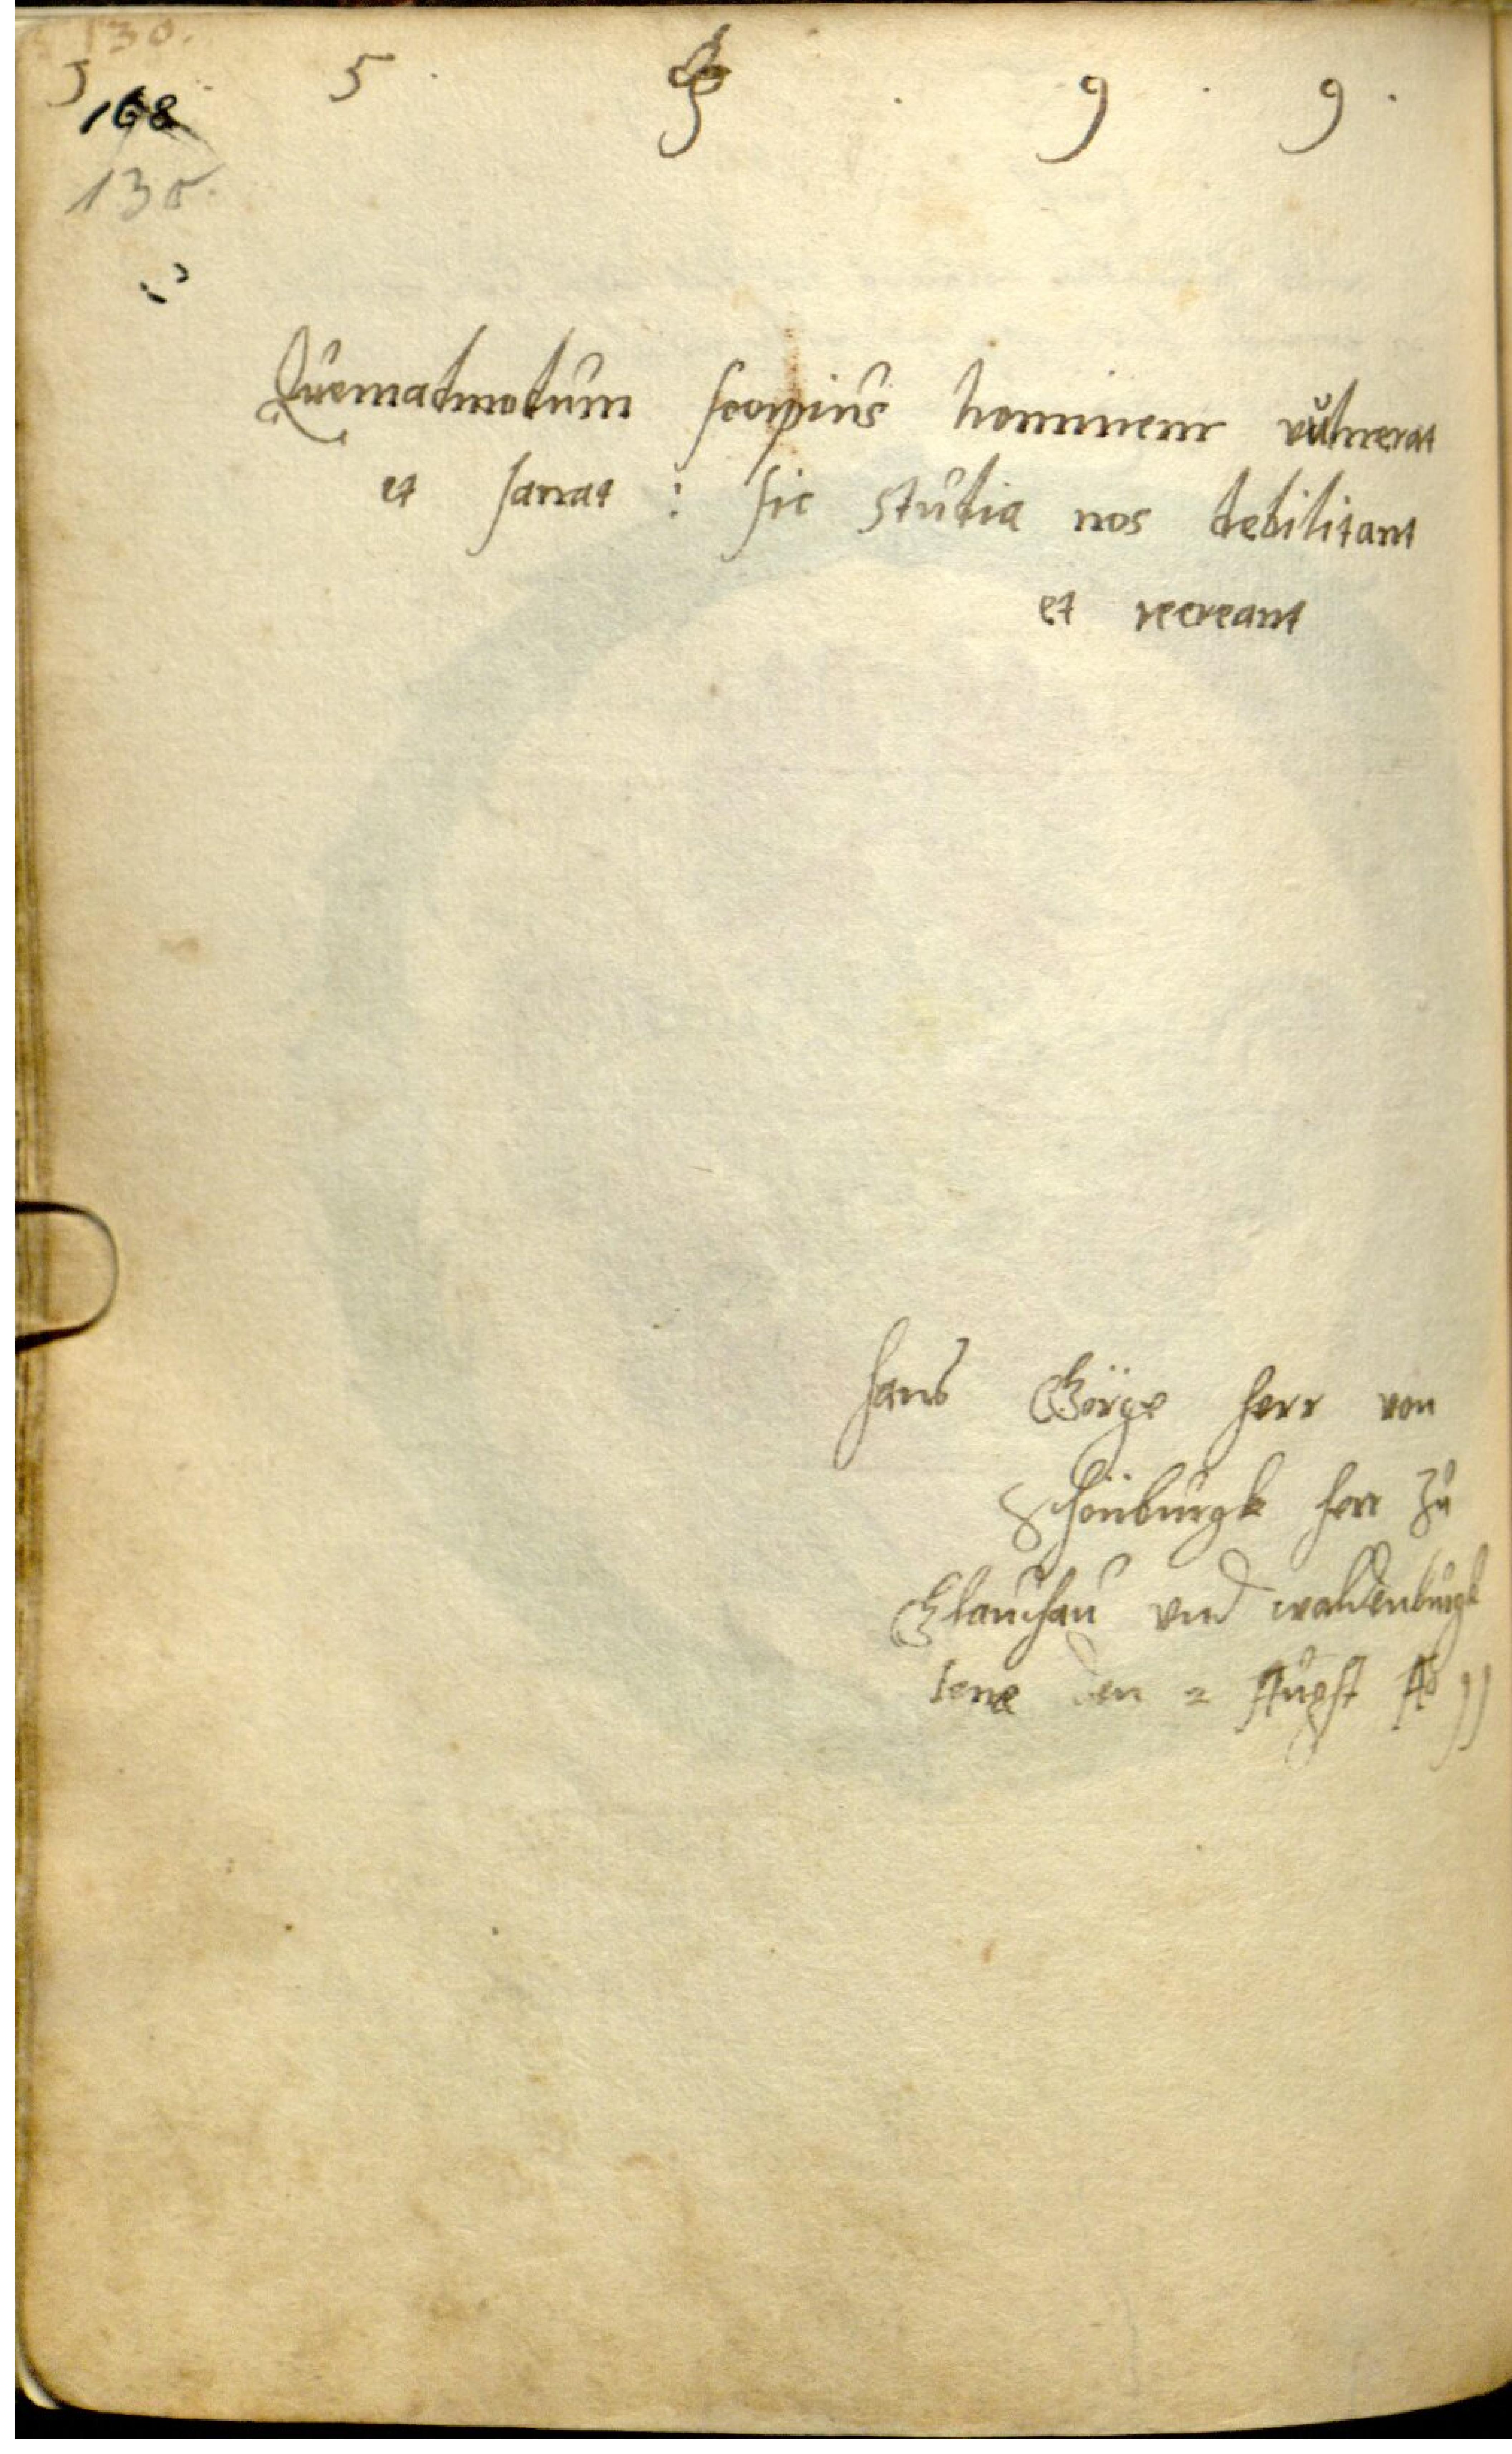 130.
5 . 9 . 9 .
168
130.
Quemadmodum scorpius hominem vulnerat
et sanat : sic studia nos debilitant
et recreant
Hans Görge Herr von
Schönburgk Herr zu
Glauchau vnd waldenburgk
Iene den 2 Augst Aº 99